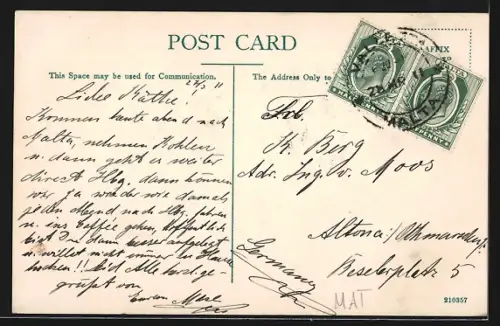 POST CARD
This Space may be used for Communication.
The Address Only to
AFFIX
27/3 11
Liebe Käthe!
Kommen heute abend nach
Malta, nehmen Kohlen
u. dann geht es weiter
direct Hbg. dann können
wir ja wieder wie damals
jeden Abend nach Hbg. fahren
u. ins Caffée gehen. Hoffentlich
bist Du dann besser aufgelegt
u. willst nicht immer zu Hause
hocken!! Seid Alle herzl. ge-
grüßt von
Eurem
Frl.
K. Berg
Adr. Ing. v. Moos
Altona/Othmarschen
Beselerplatz 5
Germany
MALTA
MALTA
MAT
210357